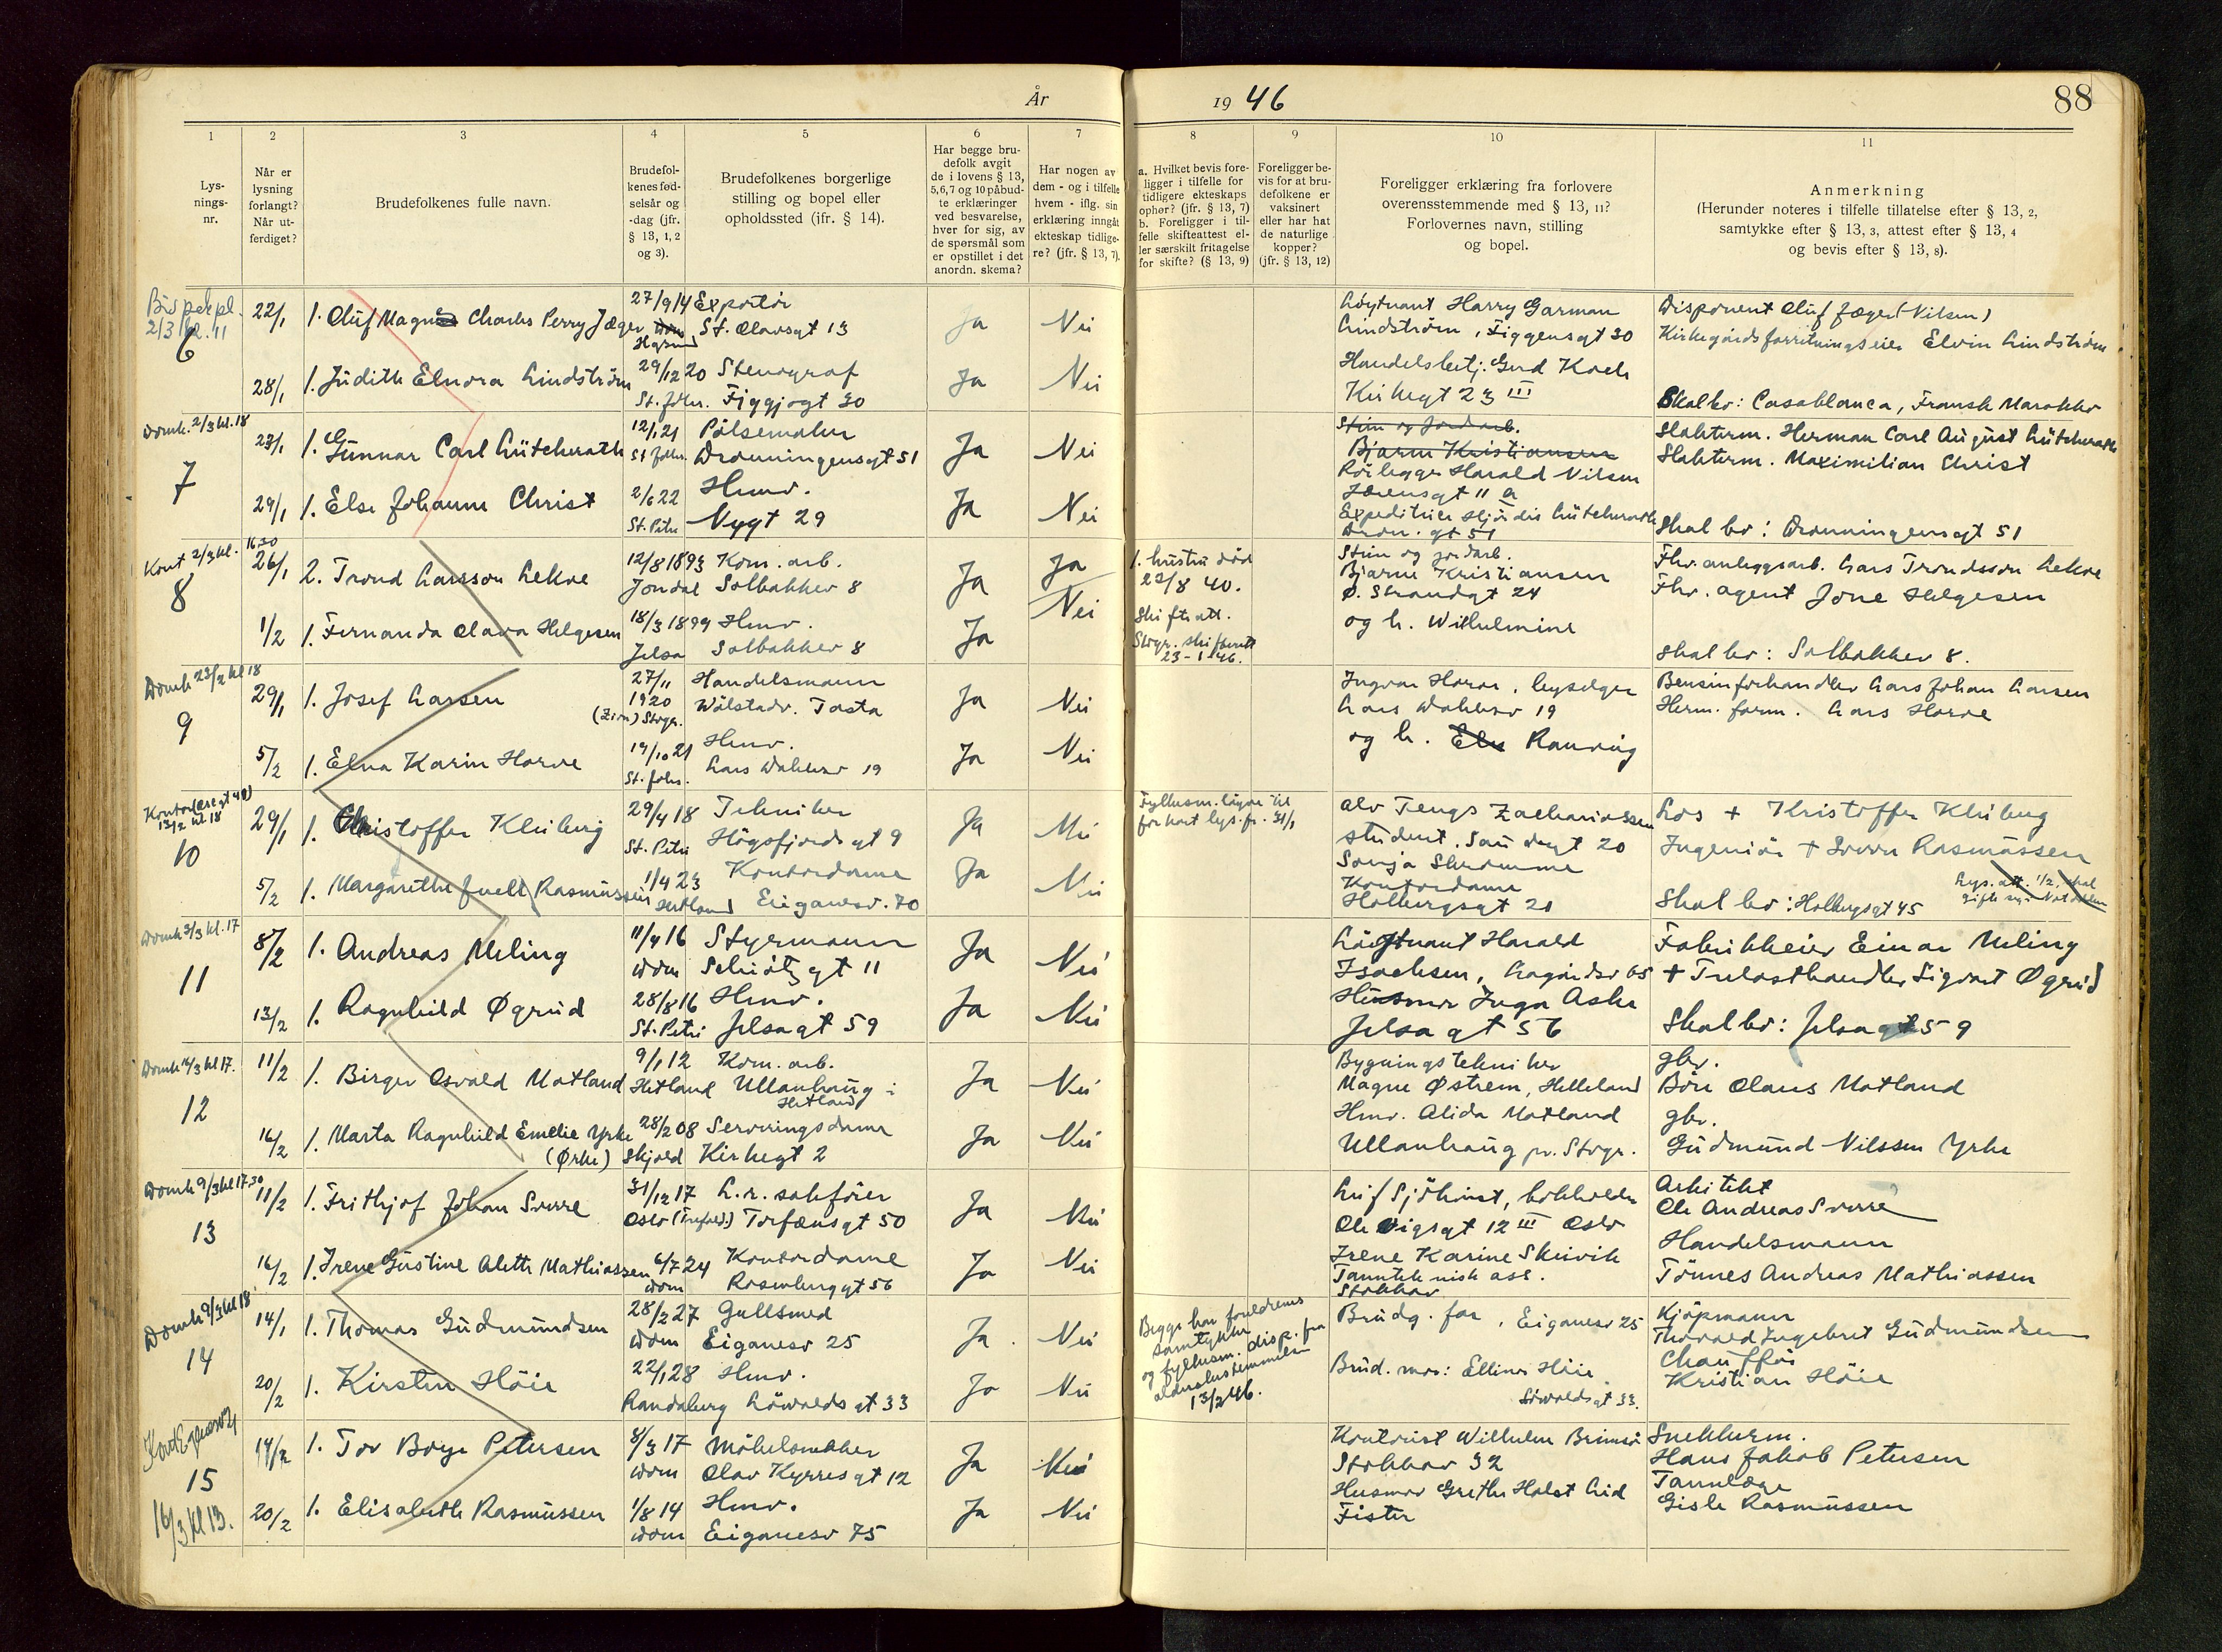 År
19 46
88
1
Lys-
nings-
nr.
2
Når er
lysning
forlangt?
Når ut-
ferdiget?
3
Brudefolkenes fulle navn.
4
Brudefol-
kenes fød-
selsår og
-dag (jfr.
§ 13, 1, 2
og 3).
5
Brudefolkenes borgerlige
stilling og bopel eller
opholdssted (jfr. § 14).
6
Har begge bru-
defolk avgit
de i lovens § 13,
5, 6, 7 og 10 påbud-
te erklæringer
ved besvarelse,
hver for sig, av
de spørsmål som
er opstillet i det
anordn. skema?
7
Har nogen av
dem - og i tilfelle
hvem - iflg. sin
erklæring inngått
ekteskap tidlige-
re? (jfr. § 13, 7).
8
a. Hvilket bevis fore-
ligger i tilfelle for
tidligere ekteskaps
ophør? (jfr. § 13, 7)
b. Foreligger i til-
felle skifteattest el-
ler særskilt fritagelse
for skifte? (§ 13, 9)
9
Foreligger be-
vis for at bru-
defolkene er
vaksinert
eller har hat
de naturlige
kopper?
(jfr. § 13, 12)
10
Foreligger erklæring fra forlovere
overensstemmende med § 13, 11?
Forlovernes navn, stilling
og bopel.
11
Anmerkning
(Herunder noteres i tilfelle tillatelse efter § 13, 2,
samtykke efter § 13, 3, attest efter § 13, 4
og bevis efter § 13, 8).
2/3 kl. 11
6
22/1 1. Oluf Magnus Charles Perry Jæger 27/9 14 Exportör St. Olavsgt 13 Ja Nei
Löytnant Harry Garman Lindström, Figgensgt 30
Disponent Oluf Jæger (Nilsen)
28/1 1. Judith Elnora Lindström 29/12 20 St. Joh. Stenograf Figgjogt 30 Ja Nei
Handelsbetj. Gerd Koch Kirkegt 23 III
Elvin Lindström
Skal bo: Casablanca, Fransk Marokko
Domk. 2/3 kl. 18
7
23/1 1. Gunnar Carl Lütcherath 12/1 21 St Joh. Pölsemaker Dronningensgt 51 Ja Nei
Stein og Jordarb.
Bjarne Kristiansen
Rörlegger Harald Nilsen
Jærensgt 11 a
Slakterm. Herman Carl August Lütcherath
Slakterm. Maximilian Christ
29/1 1. Else Johanne Christ 2/6 22 St. Petri Hmv. Nygt 29 Ja Nei
Expeditrise Hjördis Lütcherath
Dron. gt 51
Skal bo: Dronningensgt 51
Kont 2/3 kl. 16.30
8
26/1 2. Trond Larsson Lekve 12/8 1893 Jondal Kom. arb. Solbakkev 8 Ja Ja
1. hustru död
22/8 40.
Stein og jordarb.
Bjarne Kristiansen
Ø. Strandgt 24
Fhv. anleggsarb. Lars Trondsson Lekve
Fhv. agent Jone Helgesen
1/2 1. Fernanda Olava Helgesen 18/3 1899 Jelsa Hmv. Solbakkev 8 Ja Nei
Skifteatt.
Stvgr. skifterett
23-1-46.
og h. Wilhelmine
Skal bo: Solbakkev 8.
Domk 23/2 kl 18
9
29/1 1. Josef Larsen 27/11 1920 (Zion) Stvgr. Handelsmann Wölstadv. Tasta Ja Nei
Ingvar Horve, Lars Wakkesv 19
Bensinforhandler Lars Johan Larsen
Herm. form. Lars Horve
5/2 1. Elna Karin Horve 19/10 21 St. Joh. Hmv. Lars Wakkesv 19 Ja Nei
og h. Else Rannveig
13/2 kl. 18
10
29/1 1. Christoffer Kleiberg 29/4 18 St. Petri Tekniker Högsfjordsgt 9 Ja Nei
Fylkesm. löyve til
for kort lys. fr. 31/1
Alv Tengs Zachariassen
student, 20
Los + Kristoffer Kleiberg
Ingeniör + Sverre Rasmussen
5/2 1. Margarethe Juell Rasmussen 1/4 23 Hetland Kontordame Eiganesv. 70 Ja Nei
Sonja Skromme
Kontordame
Holbergsgt 20
Skal bo: Holbergsgt 45
Domk 3/3 kl. 17
11
8/2 1. Andreas Meling 11/4 16 Dom Styrmann Schiötzgt 11 Ja Nei
Löytnant Harald Isachsen, Lagårdsv 65
Fabrikkeier Einar Meling
+ Trelasthandler Sigvart Øgreid
13/2 1. Ragnhild Øgreid 28/8 16 St. Petri Hmv. Jelsagt 59 Ja Nei
Husmor Inga Aske
Jelsagt 56
Skal bo: Jelsagt 59
Domk 16/3 kl 17.
12
11/2 1. Birger Osvald Matland 9/1 12 Hetland Kom. arb. Ullanhaug i Hetland Ja Nei
Bygningstekniker
Magne Østrem, Helleland
gbr.
Böre Olaus Matland
16/2 1. Marta Ragnhild Emelie Yrke (Ørke) 28/2 08 Skjold Serveringsdame Kirkegt 2 Ja Nei
Hmv. Alida Matland
Ullanhaug pr. Stvgr.
gbr.
Gudmund Nilssen Yrke
Domk 9/3 kl 17.30
13
11/2 1. Frithjof Johan Sverre 31/12 17 Oslo (Trefold.) L.r. sakförer Torfæusgt 50 Ja Nei
Leif Sjökvist, bokholder
Ole Vigsgt 12 III Oslo
Arkitekt
Ole Andreas Sverre
16/2 1. Irene Gustine Alette Mathiassen 6/7 24 Dom Kontordame Rosenberggt 56 Ja Nei
Irene Karine Skeivik
Tannteknisk ass.
Stokkav
Handelsmann
Tönnes Andreas Mathiassen
Domk 9/3 kl 18
14
14/1 1. Thomas Gudmundsen 28/2 27 Dom Gullsmed Eiganesv 25 Ja Nei
Begge har foreldrenes
samtykke
og fylkesm. disp. fra
aldersbestemmelsen
13/2 46.
Brudg. far, Eiganesv 25
Kjöpmann
Thorvald Ingebret Gudmundsen
20/2 1. Kirsten Höie 22/1 28 Randaberg Hmv. Lövvoldsgt 33 Ja Nei
Brud. mor: Elline Höie
Lövvoldsgt 33.
Chaufför
Kristian Höie
15
16/3 kl 13.
14/2 1. Tor Börge Petersen 8/3 17 Dom Möbelsnekker Olav Kyrresgt 12 Ja Nei
Kontorist Wilhelm Brimsö
Stokkav 32
Snekkerm.
Hans Jakob Petersen
20/2 1. Elisabeth Rasmussen 1/8 14 Dom Hmv. Eiganesv 75 Ja Nei
Husmor Grethe Holst Lid
Fister
Tannlæge
Gisle Rasmussen